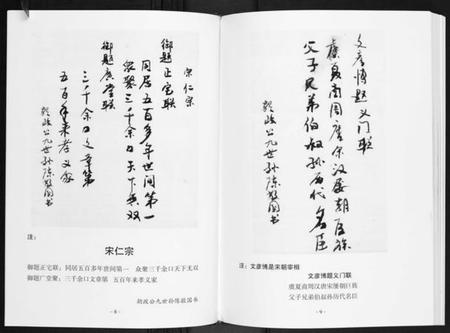 宋仁宗
御题正宅联
同居五百多年世间第一
众聚三千余口天下无双
御题广堂联
三千余口文章第
五百年来孝义家
朝政公九世孙陈敬国书
注:
宋仁宗
御题正宅联:同居五百多年世间第一 众聚三千余口天下无双
御题广堂联:三千余口文章第 五百年来孝义家
朝政公九世孙陈敬国书
- 8 -
文彦博题义门联
虞夏商周唐宋汉屡朝巨族
父子兄弟伯叔孙历代名臣
朝政公九世孙陈敬国书
注:文彦博是宋朝宰相
文彦博题义门联
虞夏商周汉唐宋屡朝巨族
父子兄弟伯叔孙历代名臣
- 9 -